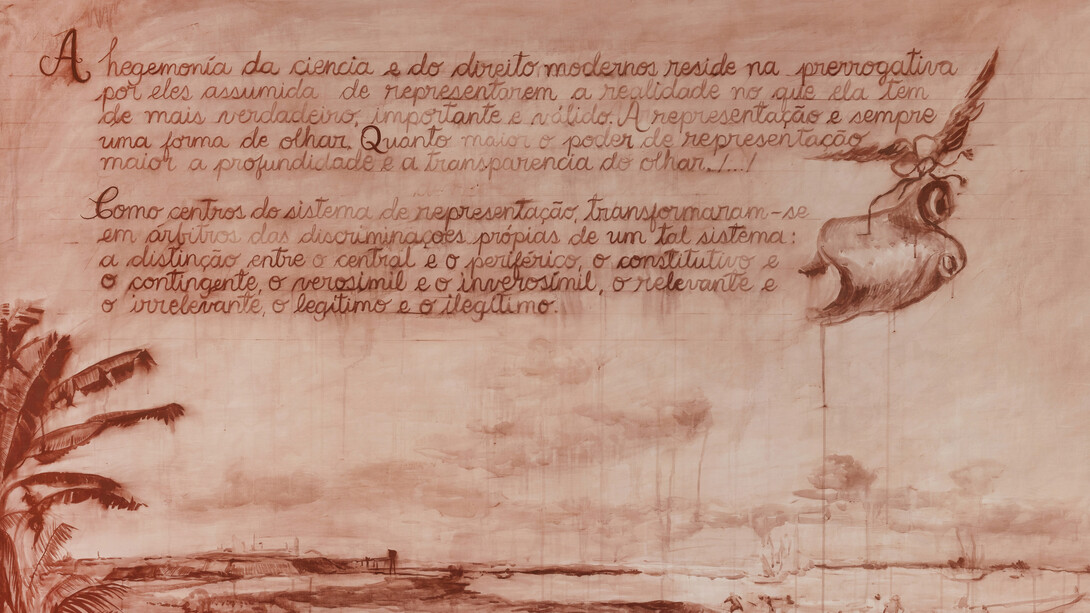 A hegemonía da ciencia e do direito modernos reside na prerrogativa
por eles assumida de representarem a realidade no que ela tem
de mais verdadeiro, importante e válido. A representação e sempre
uma forma de olhar. Quanto maior o poder de representação
maior a profundidade e a transparencia do olhar. /.../
Como centros do sistema de representação, transformaram-se
em árbitros das discriminações própias de um tal sistema:
a distinção entre o central e o periférico, o constitutivo e
o contingente, o verosímil e o inverosímil, o relevante e
o irrelevante, o legítimo e o ilegítimo.